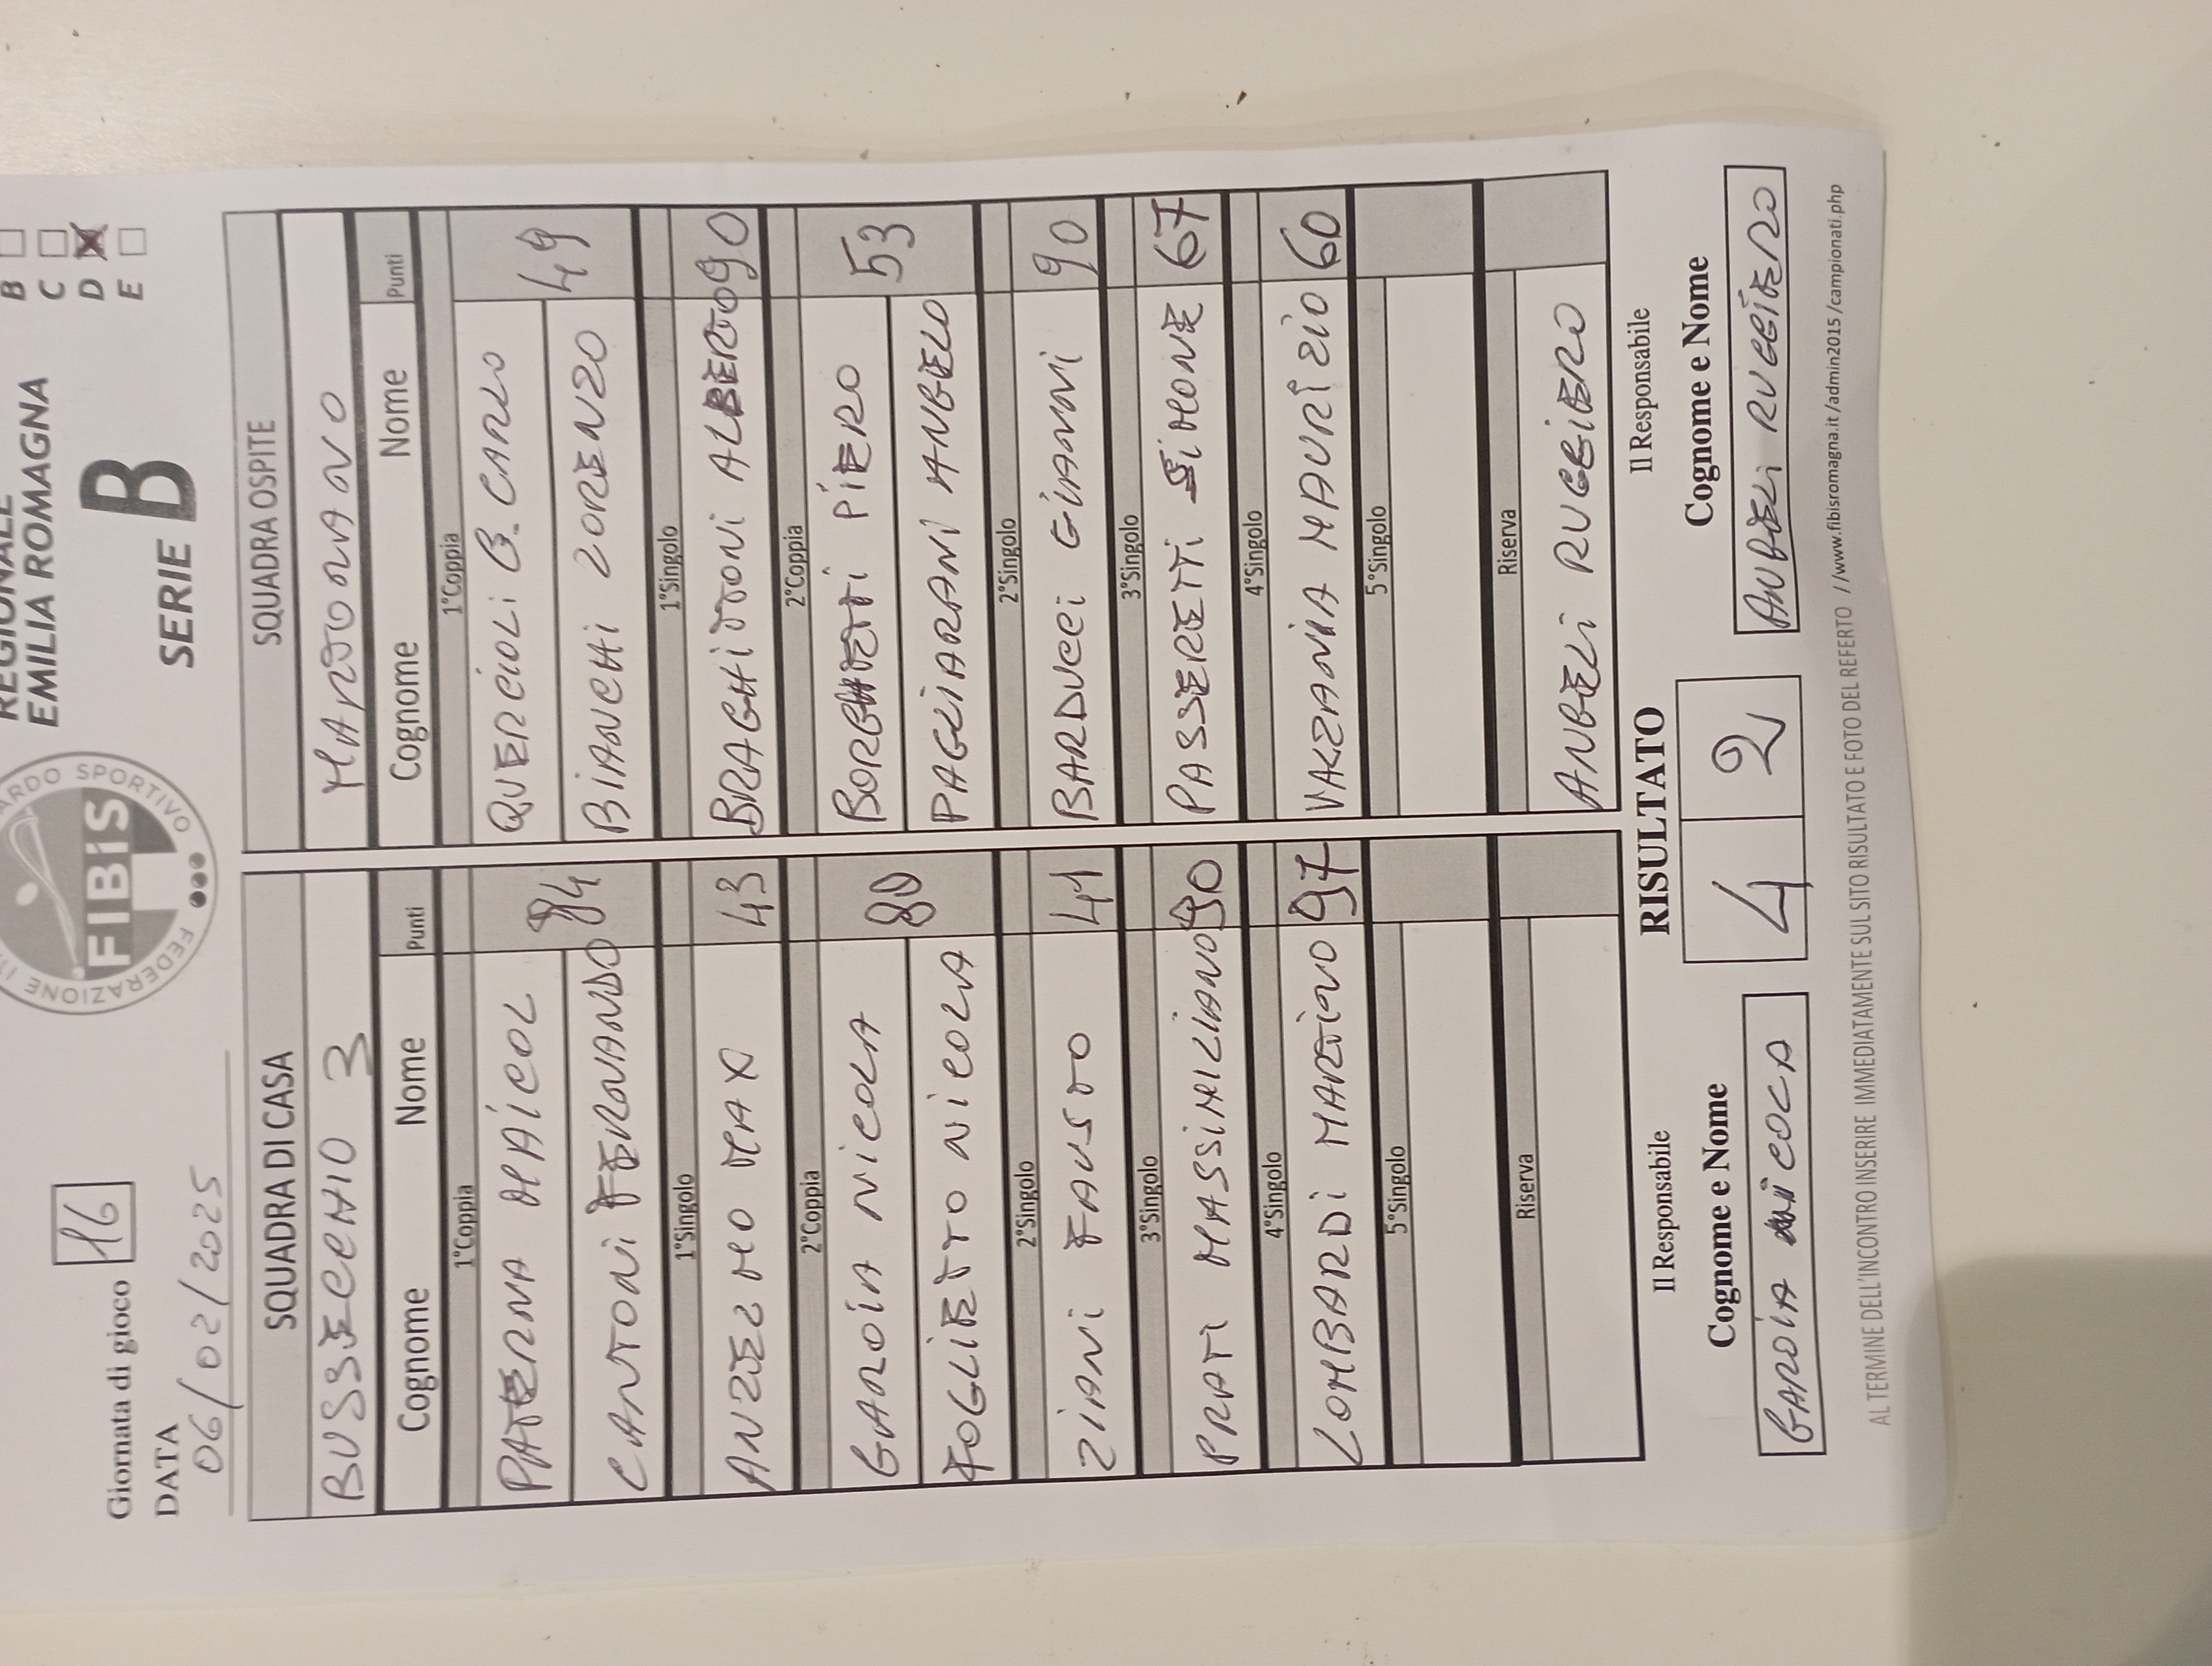 REGIONALE
EMILIA ROMAGNA
SERIE B
B
C
D
E
FIBiS
Giornata di gioco 16
DATA
06/02/2025
SQUADRA DI CASA
SQUADRA OSPITE
BUSSECCHIO 3
Cognome Nome Punti
Cognome Nome Punti
1°Coppia
1°Coppia
PATERNA MAICOL
QUERCIOLI G. CARLO
84
49
CANTONI FERNANDO
BIANCHI LORENZO
1°Singolo
1°Singolo
ANZELMO MAX 43
BRAGHITTONI ALBERTO 90
2°Coppia
2°Coppia
GAROIA NICOLA
BORGHETTI PIERO
80
53
FOGLIETTO NICOLA
PAGLIARANI ANGELO
2°Singolo
2°Singolo
ZIANI FAUSTO 41
BARDUCCI GIANNI 90
3°Singolo
3°Singolo
PRATI MASSIMILIANO 90
PASSERETTI SIMONE 67
4°Singolo
4°Singolo
LOMBARDI MARTINO 97
MAURIZIO 60
5°Singolo
5°Singolo
Riserva
Riserva
ANGELI RUGGIERO
Il Responsabile
RISULTATO
Il Responsabile
Cognome e Nome
4 2
Cognome e Nome
GAROIA NICOLA
ANGELI RUGGIERO
AL TERMINE DELL'INCONTRO INSERIRE IMMEDIATAMENTE SUL SITO RISULTATO E FOTO DEL REFERTO //www.fibisromagna.it/admin2015/campionati.php